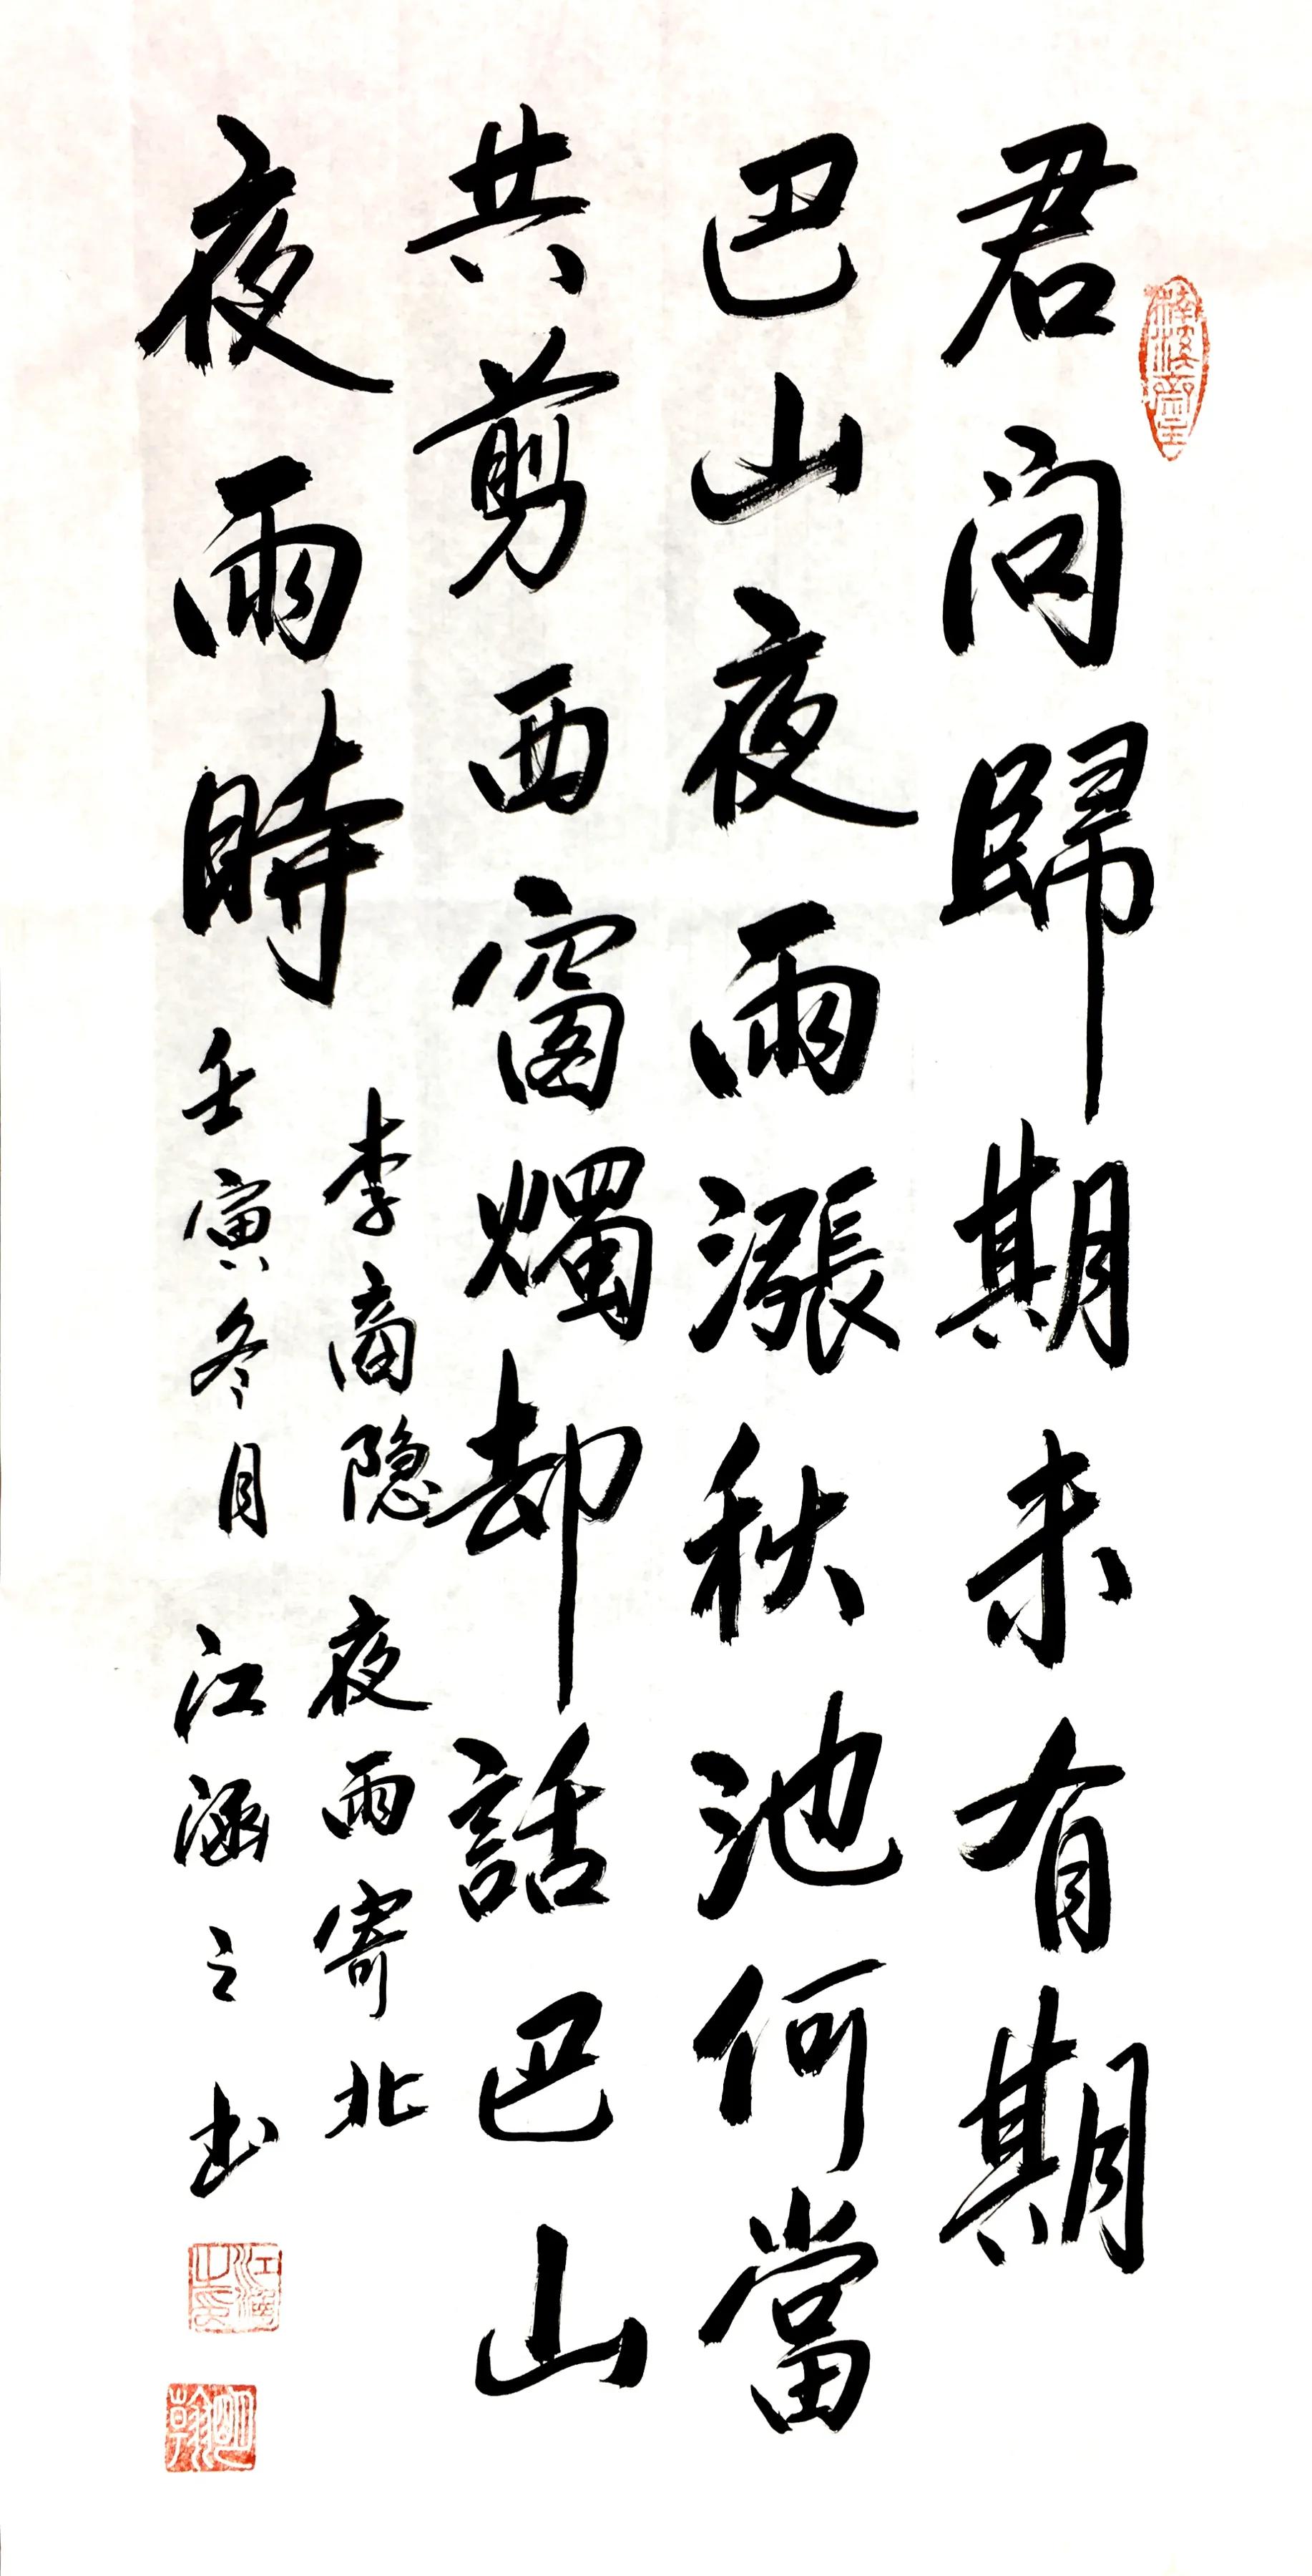 君问歸期期未有期
巴山夜雨漲秋池何當
共剪西窗燭却話巴山
夜雨時
李商隐 夜雨寄北
壬寅冬月 江涵之书
江涵之印